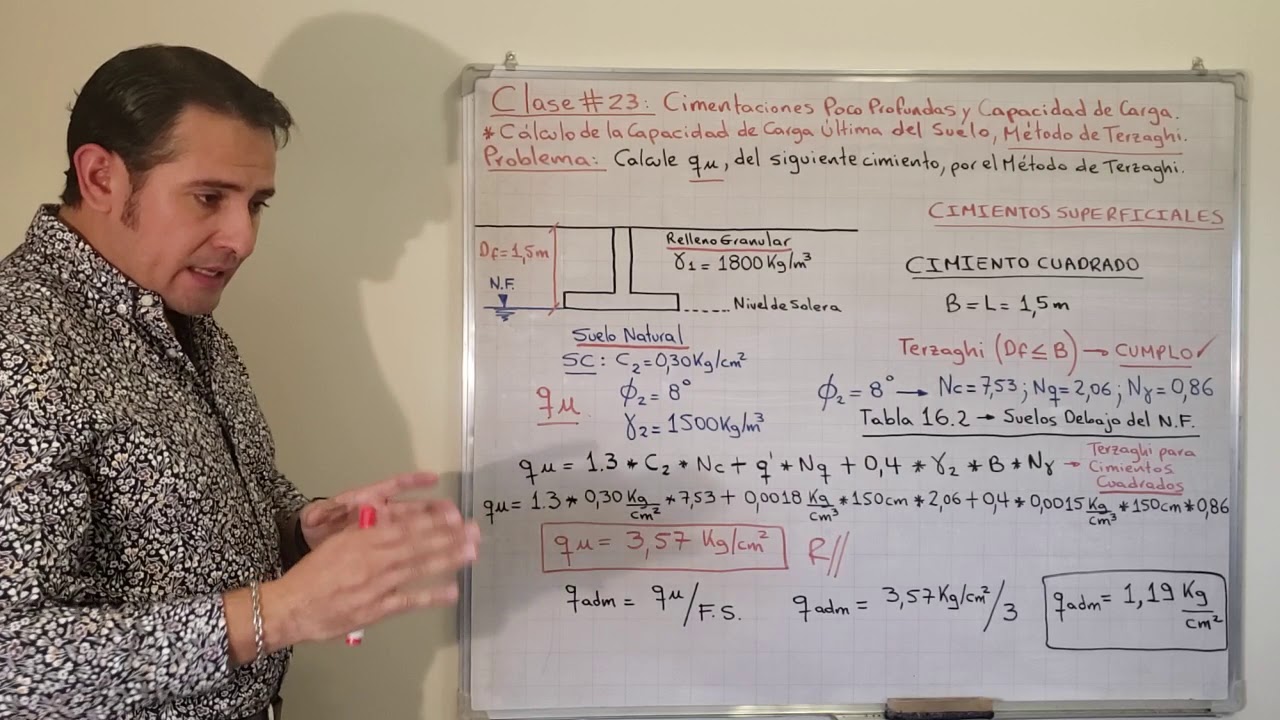 Clase #23: Cimentaciones Poco Profundas y Capacidad de Carga.
* Cálculo de la Capacidad de Carga Última del Suelo, Método de Terzaghi.
Problema: Calcule qu, del siguiente cimiento, por el Método de Terzaghi.
CIMIENTOS SUPERFICIALES
Df = 1,5m
Relleno Granular
γ1 = 1800 Kg/m³
CIMIENTO CUADRADO
N.F.
Nivel de Solera
B = L = 1,5 m
Suelo Natural
SC: C2 = 0,30 Kg/cm²
Terzaghi (Df ≤ B) → CUMPLO ✓
qu
ϕ2 = 8°
ϕ2 = 8° → Nc = 7,53 ; Nq = 2,06 ; Nγ = 0,86
γ2 = 1500 Kg/m³
Tabla 16.2 → Suelos Debajo del N.F.
qu = 1.3 * C2 * Nc + q' * Nq + 0,4 * γ2 * B * Nγ → Terzaghi para
Cimientos
Cuadrados
qu = 1.3 * 0,30 Kg/cm² * 7,53 + 0,0018 Kg/cm³ * 150cm * 2,06 + 0,4 * 0,0015 Kg/cm³ * 150cm * 0,86
qu = 3,57 Kg/cm² R//
qadm = qu/F.S. qadm = 3,57 Kg/cm²/3 qadm = 1,19 Kg/cm²